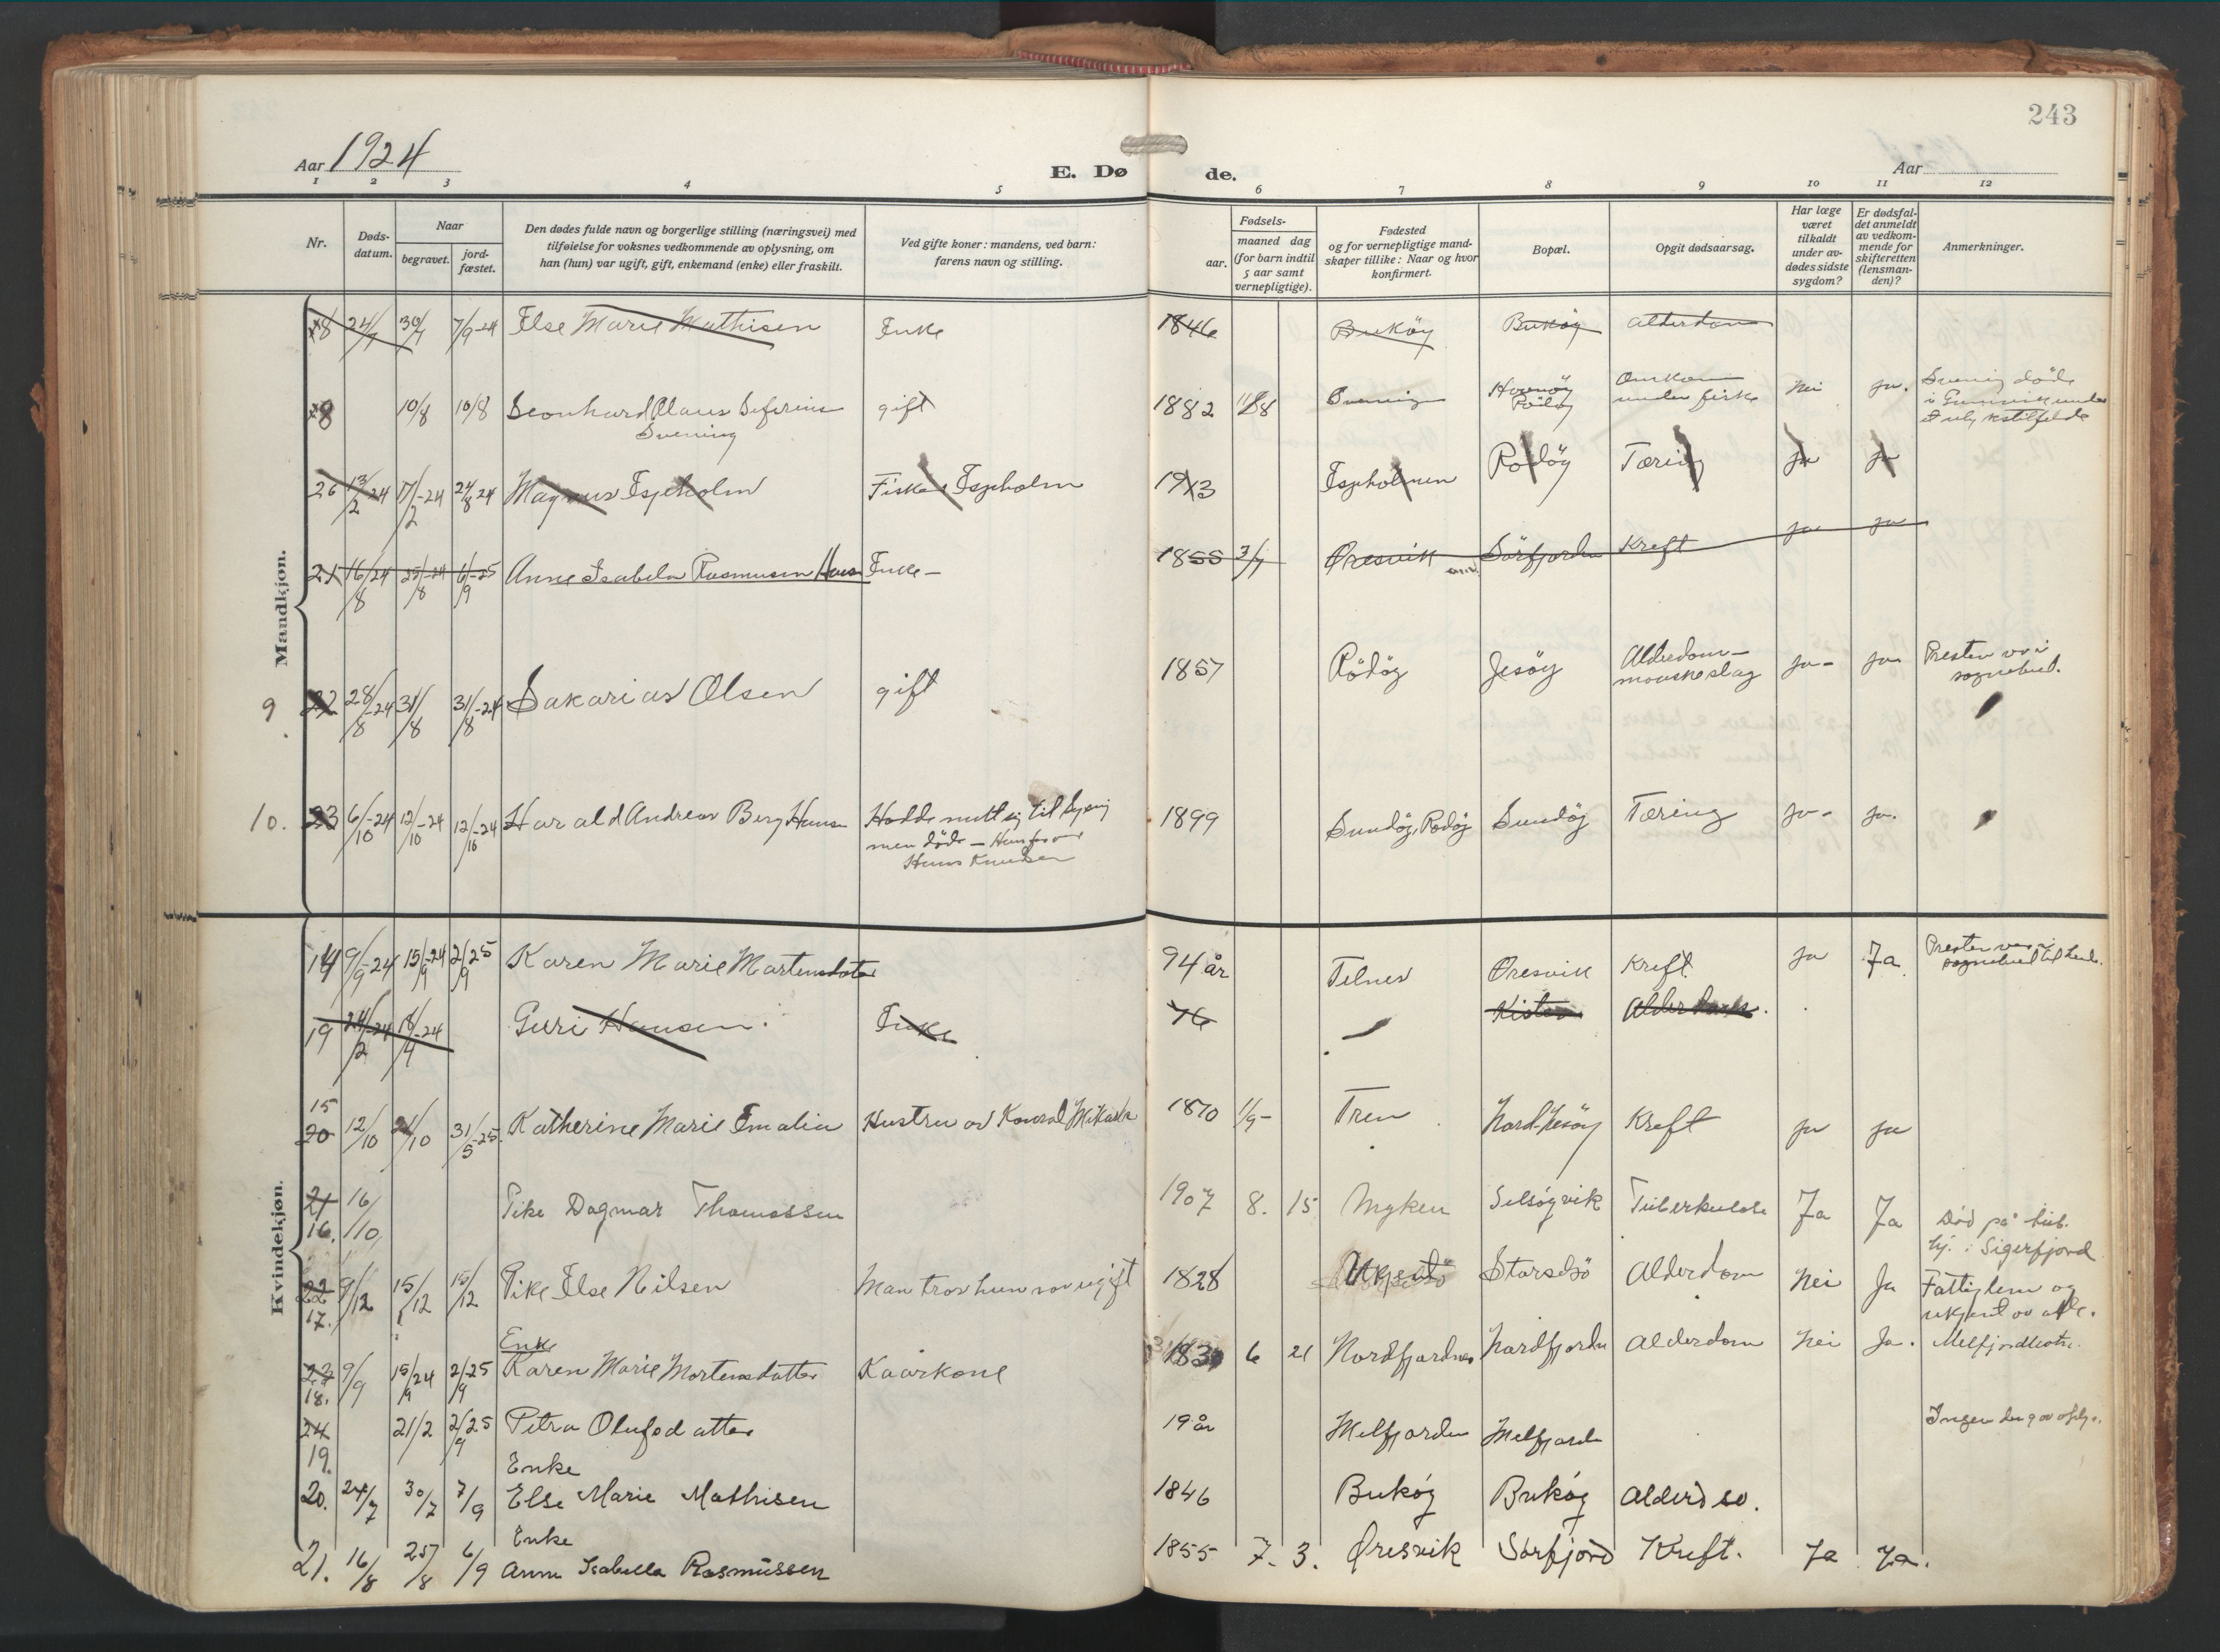 243
Aar 1924
E. Dø
de.
Aar
1 2 3 4 5 6 7 8 9 10 11 12
Nr.
Døds-
datum.
Naar
begravet.
jord-
fæstet.
Den dødes fulde navn og borgerlige stilling (næringsvei) med
tilføielse for voksnes vedkommende av oplysning, om
han (hun) var ugift, gift, enkemand (enke) eller fraskilt.
Ved gifte koner: mandens, ved barn:
farens navn og stilling.
Fødsels-
aar.
maaned dag
(for barn indtil
5 aar samt
vernepligtige).
Fødested
og for vernepligtige mand-
skaper tillike: Naar og hvor
konfirmert.
Bopæl.
Opgit dødsaarsag.
Har læge
været
tilkaldt
under av-
dødes sidste
sygdom?
Er dødsfal-
det anmeldt
av vedkom-
mende for
skifteretten
(lensman-
den)?
Anmerkninger.
Mandkjøn.
24/7 30/7 7/9-24 Else Marie Mathisen Enke 1846 Bukøy Bukøy Alderdom
8 10/8 10/8 Leonhard Olaus Seferius gift 1882 Svening Omkom nei ja. Svening døde
Svening Rødøy under fiske i
13/2 24 17/2-24 24/8 24 Magnus Espeholm Fisker Espeholm 1913 Espeholmen Rødöy Tæring ja ja
21 16/8 24 25/8-24 6/9-25 Anne Isabela Rasmussen Enke- 1855 3/7 Øresvik Sörfjorden Kreft ja ja
9 22 28/8-24 31/8 31/8-24 Sakarias Olsen gift 1857 Rödöy Jesöy Alderdom- ja- ja Presten var i
sognebud.
10. 23 6/10-24 12/10-24 12/10-24 Harald Andreas Berg Hansen Hadde meldt sig til 1899 Sundöy, Rödöy Sundöy Tæring ja- ja.
men döde -
Hans Knudsen
Kvindekjøn.
14 9/9-24 15/9-24 2/9 25 Karen Marie Martensdatter 94 år Telnes Øresvik Kreft ja Ja Presten var i
sognebud til hende.
19 24/2-24 18/4-24 Guri Hansen. Enke 76 Alderdom.
15
20 12/10 21/10 31/5-25 Katherine Marie Emalie Hustru av Konrad 1870 1/9- Tren Nord-Nesöy Kreft ja ja
21 16/10 Pike Dagmar Thomassen 1907 8. 15 Myken Selsøyvik Tuberkulose Ja Ja Død på tub.
16. hj. i Sigerfjord
22 9/12 15/12 15/12 Pike Else Nilsen Man tror hun var ugift 1828 Storselsö Alderdom Nei Ja Fattiglem og
17. ukjent av alle.
Enke
23 9/9 15/9 24 2/9-25 Karen Marie Mortensdatter Kaarkone 183 6 21 Nordfjordnes Nordfjorden Alderdom Nei Ja.
18.
24 21/2 2/9 25 Petra Olufsdatter 19 år Melfjorden Melfjorden Ingen
19.
Enke
20. 24/7 30/7 7/9 Else Marie Mathisen 1846 Bukøy Bukøy Alderdso.
Enke
21. 16/8 25/8 6/9 Anne Isabella Rasmussen 1855 7. 3. Øresvik Sørfjord Kreft. Ja Ja.